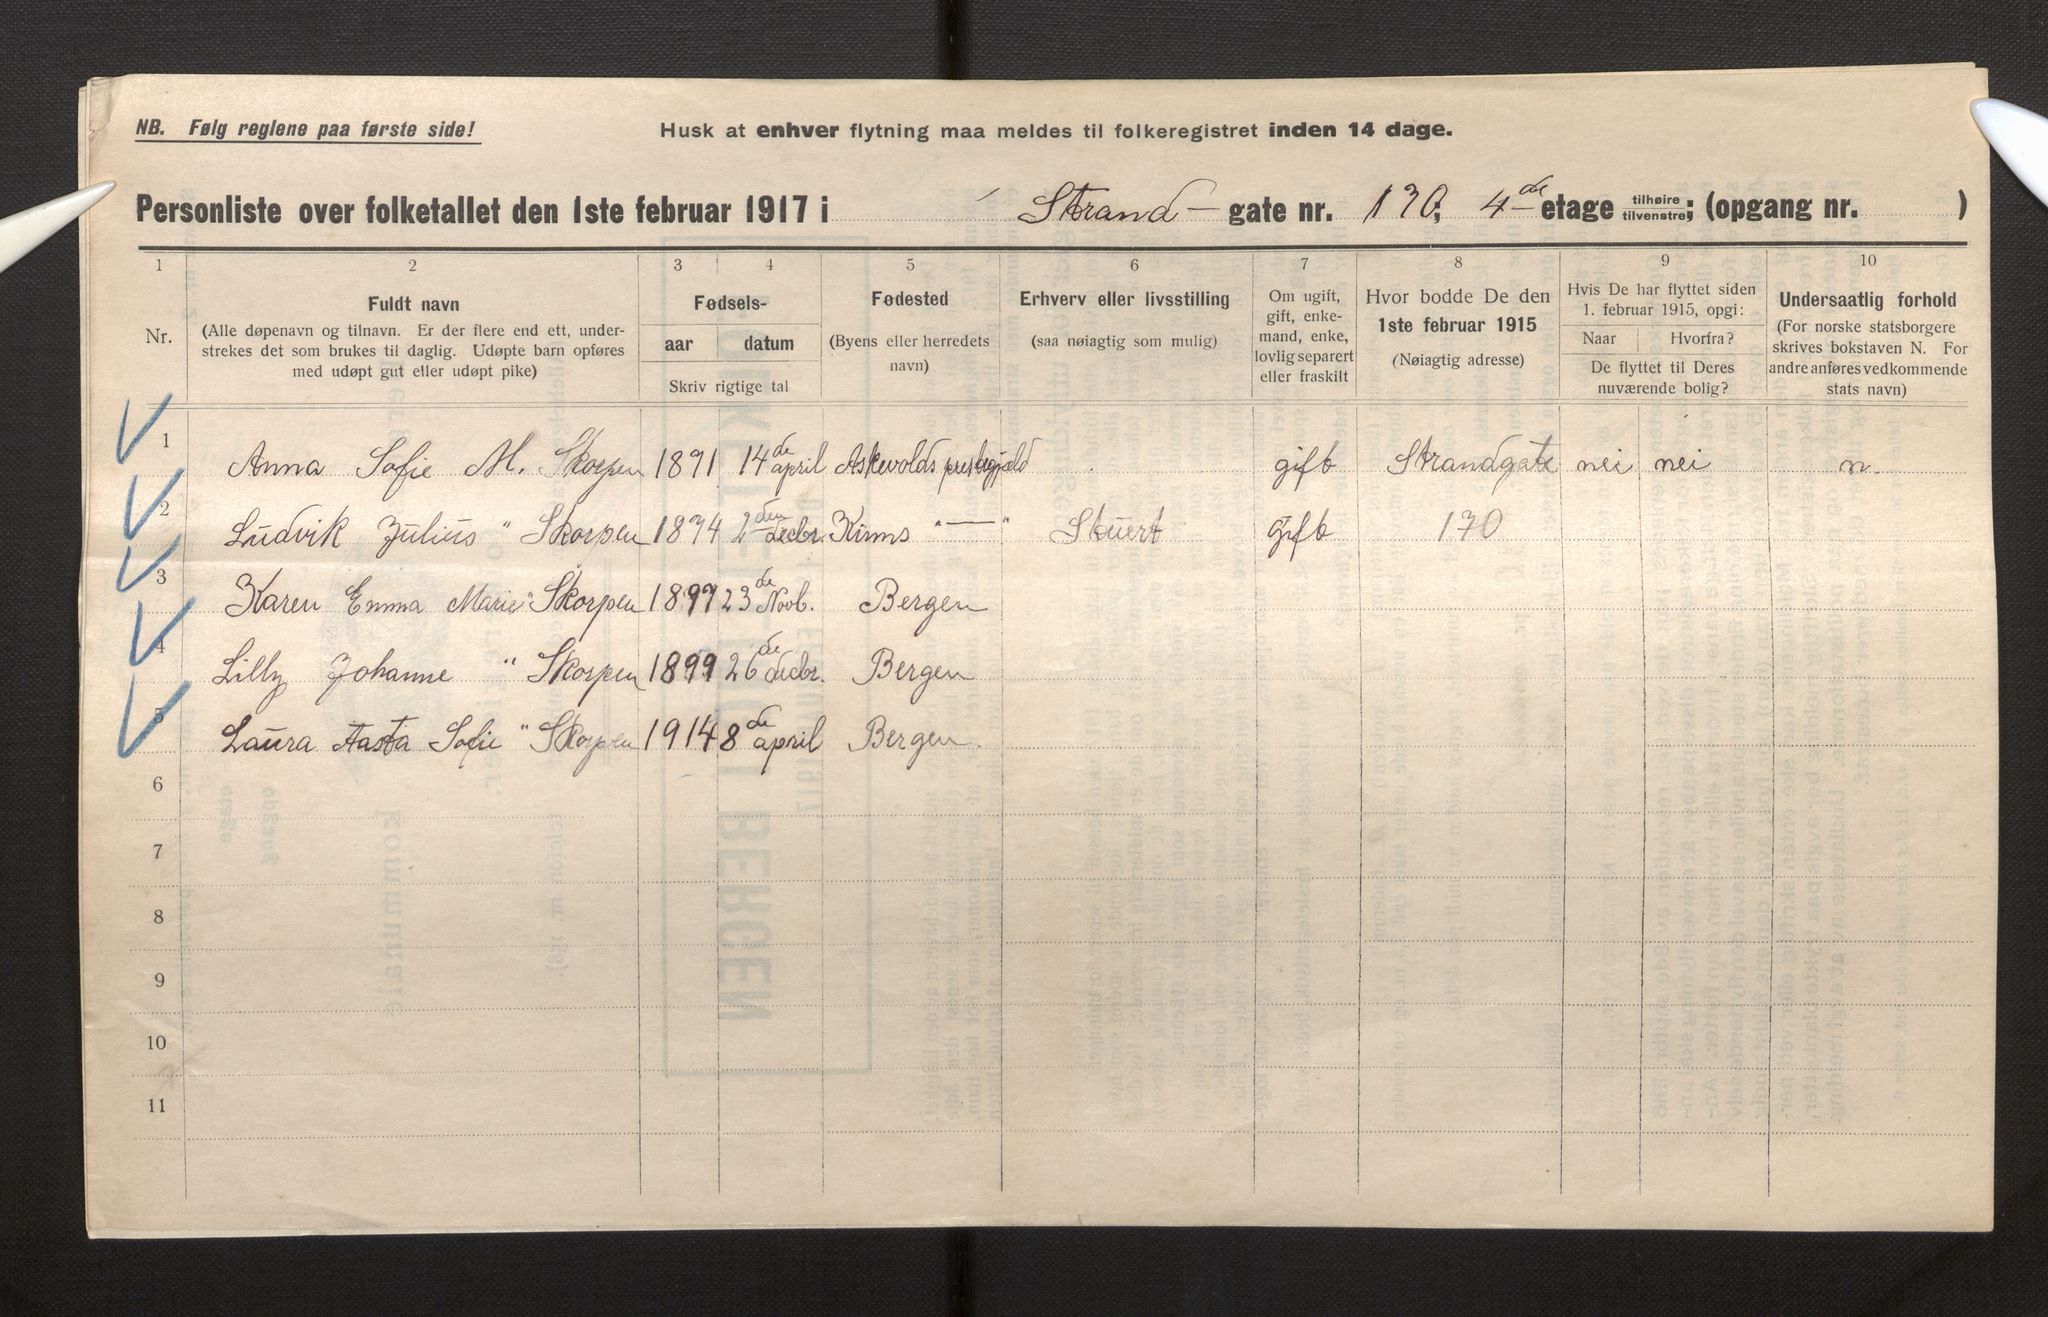 NB. Følg reglene paa første side!
Husk at enhver flytning maa meldes til folkeregistret inden 14 dage.
Personliste over folketallet den 1ste februar 1917 i Strand- gate nr. 170, 4de etage tilhøire tilvenstre; (opgang nr. )
1 2 3 4 5 6 7 8 9 10
Nr.
Fuldt navn
(Alle døpenavn og tilnavn. Er der flere end ett, under-
strekes det som brukes til daglig. Udøpte barn opføres
med udøpt gut eller udøpt pike)
Fødsels-
aar datum
Skriv rigtige tal
Fødested
(Byens eller herredets
navn)
Erhverv eller livsstilling
(saa nøiagtig som mulig)
Om ugift,
gift, enke-
mand, enke,
lovlig separert
eller fraskilt
Hvor bodde De den
1ste februar 1915
(Nøiagtig adresse)
Hvis De har flyttet siden
1. februar 1915, opgi:
Naar Hvorfra?
De flyttet til Deres
nuværende bolig?
Undersaatlig forhold
(For norske statsborgere
skrives bokstaven N. For
andre anføres vedkommende
stats navn)
1 Anna Sofie M. Skorpen 1891 14de april Askevolds prestegjeld gift Strandgate nei nei n.
2 Ludvik Julius " Skorpen 1874 2den decbr. Kinns "—" Stuert gift 170
3 Karen Emma Marie " Skorpen 1897 23de Novb. Bergen
4 Lilly Johanne " Skorpen 1899 26de decbr. Bergen
5 Laura Aasta Sofie " Skorpen 1914 8de april Bergen.
6
7
8
9
10
11